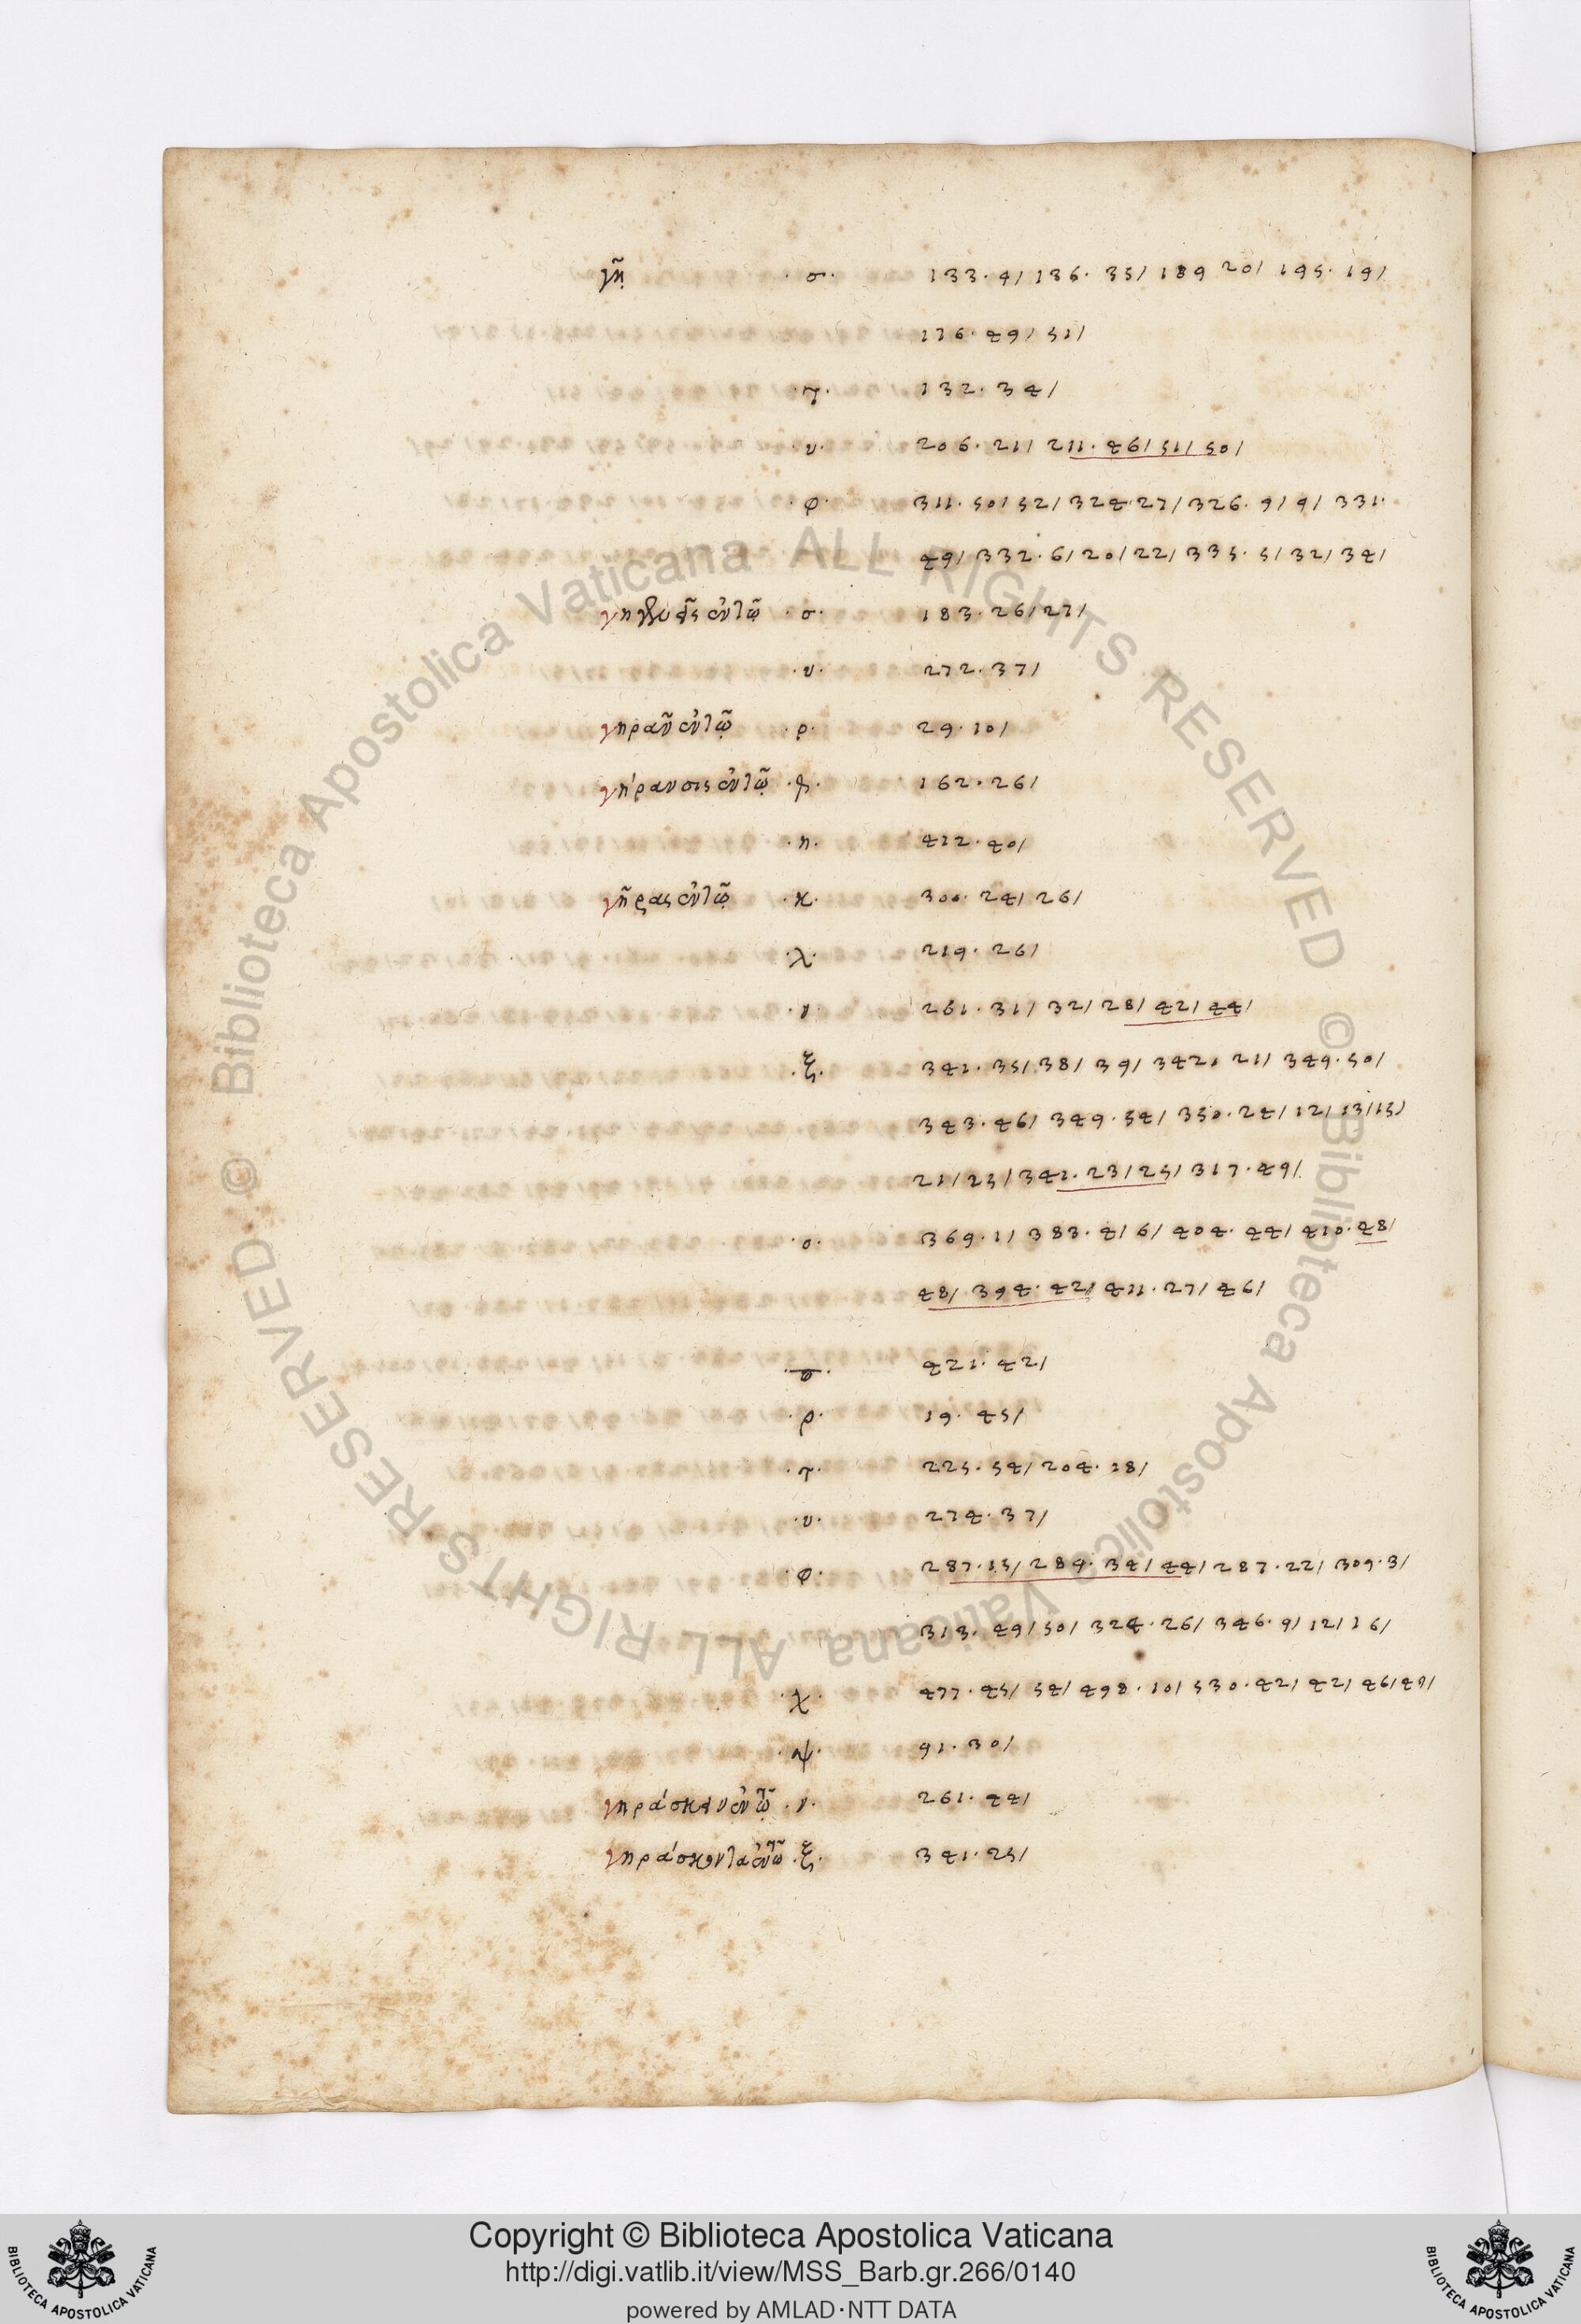 γῆ · σ · 133 · 9 / 136 · 35 / 189 20 / 195 · 19 /
136 · 49 / 51 /
· τ · 132 · 34 /
· υ · 206 · 21 / 211 · 46 / 51 / 50 /
· φ · 311 · 50 / 52 / 324 · 27 / 326 · 9 / 9 / 331 ·
49 / 332 · 6 / 20 / 22 / 335 · 5 / 32 / 34 /
· σ · 183 · 26 / 27 /
· υ · 272 · 37 /
γηρᾶν ἐν τῷ · ρ · 29 · 10 /
γήρανσις ἐν τῷ · 162 · 26 /
· η · 412 · 40 /
γῆρας ἐν τῷ · κ · 300 · 24 / 26 /
· λ · 219 · 26 /
· ν · 261 · 31 / 32 / 28 / 42 / 44 /
· ξ · 341 · 35 / 38 / 39 / 342 · 21 / 349 · 50 /
343 · 46 / 349 · 54 / 350 · 24 / 12 / 13 / 15 /
21 / 23 / 341 · 23 / 25 / 317 · 49 /
· ο · 369 · 1 / 383 · 4 / 6 / 404 · 44 / 410 · 48 /
48 / 394 · 42 / 411 · 27 / 46 /
421 · 42 /
· ρ · 19 · 45 /
· τ · 225 · 54 / 204 · 18 /
· υ · 274 · 37 /
· φ · 287 · 15 / 289 · 34 / 44 / 287 · 22 / 309 · 3 /
313 · 49 / 50 / 324 · 26 / 346 · 9 / 12 / 16 /
· χ · 477 · 45 / 54 / 498 · 10 / 530 · 42 / 42 / 46 / 47 /
· ψ · 91 · 30 /
γηράσκειν ἐν τῷ · ν · 261 · 44 /
γηράσκοντα ἐν τῷ · ξ · 341 · 25 /
© Biblioteca Apostolica Vaticana ALL RIGHTS RESERVED
© Biblioteca Apostolica Vaticana ALL RIGHTS RESERVED
Copyright © Biblioteca Apostolica Vaticana
http://digi.vatlib.it/view/MSS_Barb.gr.266/0140
powered by AMLAD·NTT DATA
BIBLIOTECA APOSTOLICA VATICANA
BIBLIOTECA APOSTOLICA VATICANA